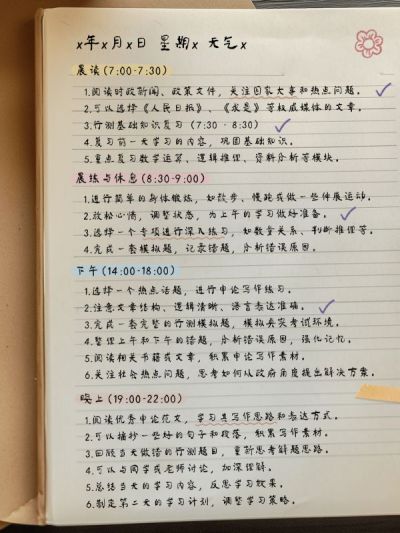 x年x月x日 星期x 天气x
晨读(7:00-7:30)
1.阅读时政新闻、政策文件，关注国家大事和热点问题。
2.可以选择《人民日报》、《求是》等权威媒体的文章。
3.行测基础知识复习(7:30 - 8:30)
4.复习前一天学习的内容，巩固基础知识。
5.重点复习数学运算、逻辑推理、资料分析等模块。
晨练与休息(8:30-9:00)
1.进行简单的身体锻炼，如散步、慢跑或做一些伸展运动。
2.放松心情，调整状态，为上午的学习做好准备。
3.选择一个专项进行深入练习，如数量关系、判断推理等。
4.完成一套模拟题，记录错题，分析错误原因。
下午(14:00-18:00)
1.选择一个热点话题，进行申论写作练习。
2.注意文章结构、逻辑清晰、语言表达准确。
3.完成一套完整的行测模拟题，模拟真实考试环境。
4.整理上午和下午的错题，分析错误原因，强化记忆。
5.阅读相关书籍或文章，积累申论写作素材。
6.关注社会热点问题，思考如何从政府角度提出解决方案。
晚上(19:00-22:00)
1.阅读优秀申论范文，学习其写作思路和表达方式。
2.可以摘抄一些好的句子和段落，积累写作素材。
3.回顾当天做错的行测题目，重新思考解题思路。
4.可以与同学或老师讨论，加深理解。
5.总结当天的学习内容，反思学习效果。
6.制定第二天的学习计划，调整学习策略。